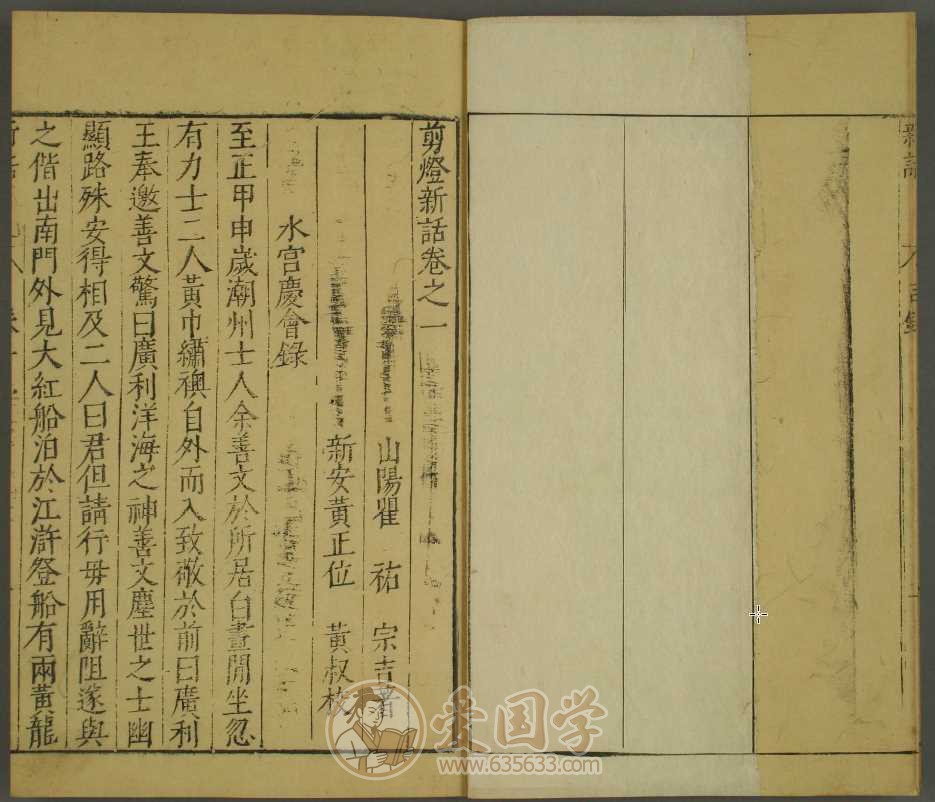 剪燈新話卷之一
山陽瞿 祐 宗吉著
新安黃正位 黃叔校
水宮慶會錄
至正甲申歲潮州士人余善文於所居白晝閒坐忽
有力士二人黃巾繡襖自外而入致敬於前曰廣利
王奉邀善文驚曰廣利洋海之神善文塵世之士幽
顯路殊安得相及二人曰君但請行毋用辭阻遂與
之偕出南門外見大紅船泊於江滸登船有兩黃龍
爱国学
www.635633.com